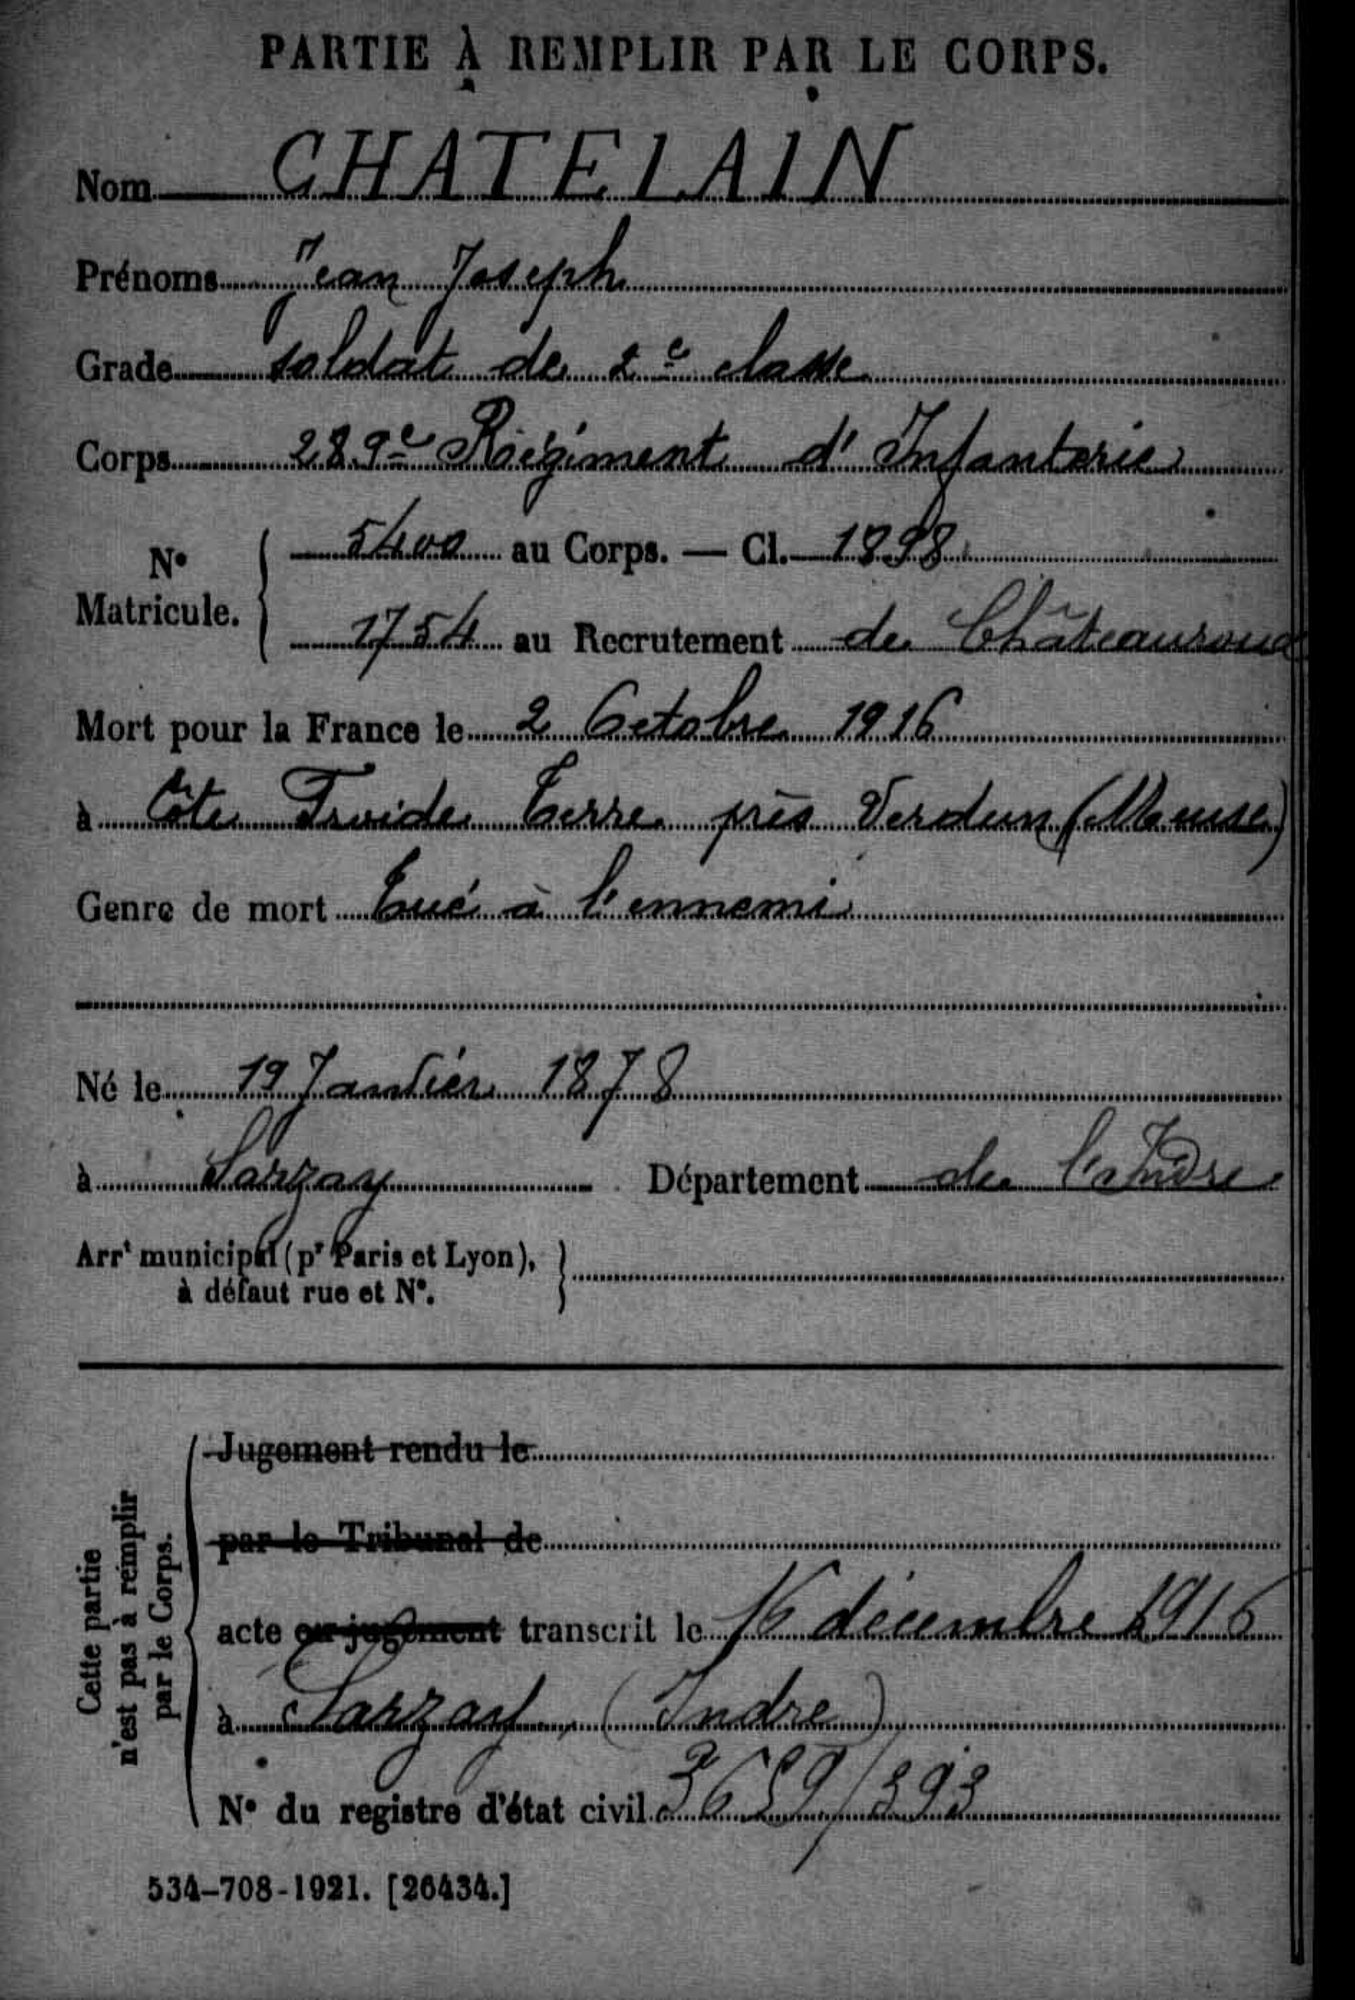 PARTIE À REMPLIR PAR LE CORPS.
Nom CHATELAIN
Prénoms Jean Joseph
Grade soldat de 2e classe
Corps 289e Régiment d'Infanterie
No Matricule. 5400 au Corps. — Cl. 1898
1754 au Recrutement de Châteauroux
Mort pour la France le 2 Octobre 1916
à Côte Froide Terre près Verdun (Meuse)
Genre de mort Tué à l'ennemi
Né le 19 Janvier 1878
à Sarzay Département de l'Indre
Arrt municipal (pr Paris et Lyon),
à défaut rue et No.
Cette partie
n'est pas à remplir
par le Corps.
Jugement rendu le
par le Tribunal de
acte ou jugement transcrit le 16 décembre 1916
à Sarzay (Indre)
No du registre d'état civil 3659/393
534-708-1921. [26434.]